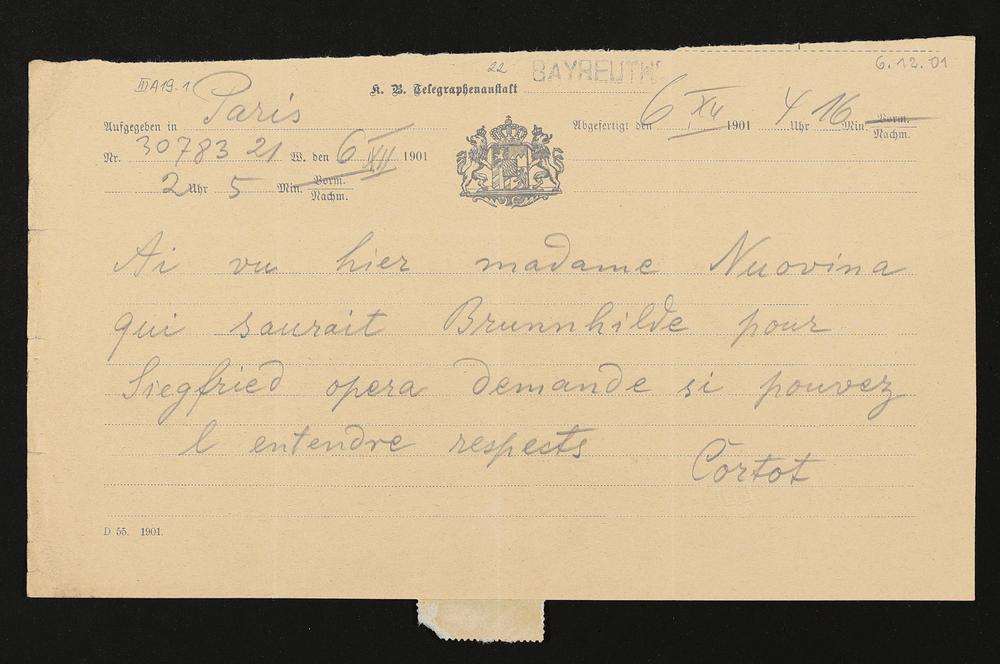 6.12.01
III A 19-1
22
BAYREUTH
K. B. Telegraphenanstalt
Aufgegeben in Paris
Abgefertigt den 6 XII 1901 4 Uhr 16 Min. Vorm. Nachm.
Nr. 30783 21 W. den 6 XII 1901
2 Uhr 5 Min. Vorm. Nachm.
Ai vu hier madame Nuovina
qui saurait Brunnhilde pour
Siegfried opera demande si pouvez
l entendre respects
Cortot
D 55. 1901.